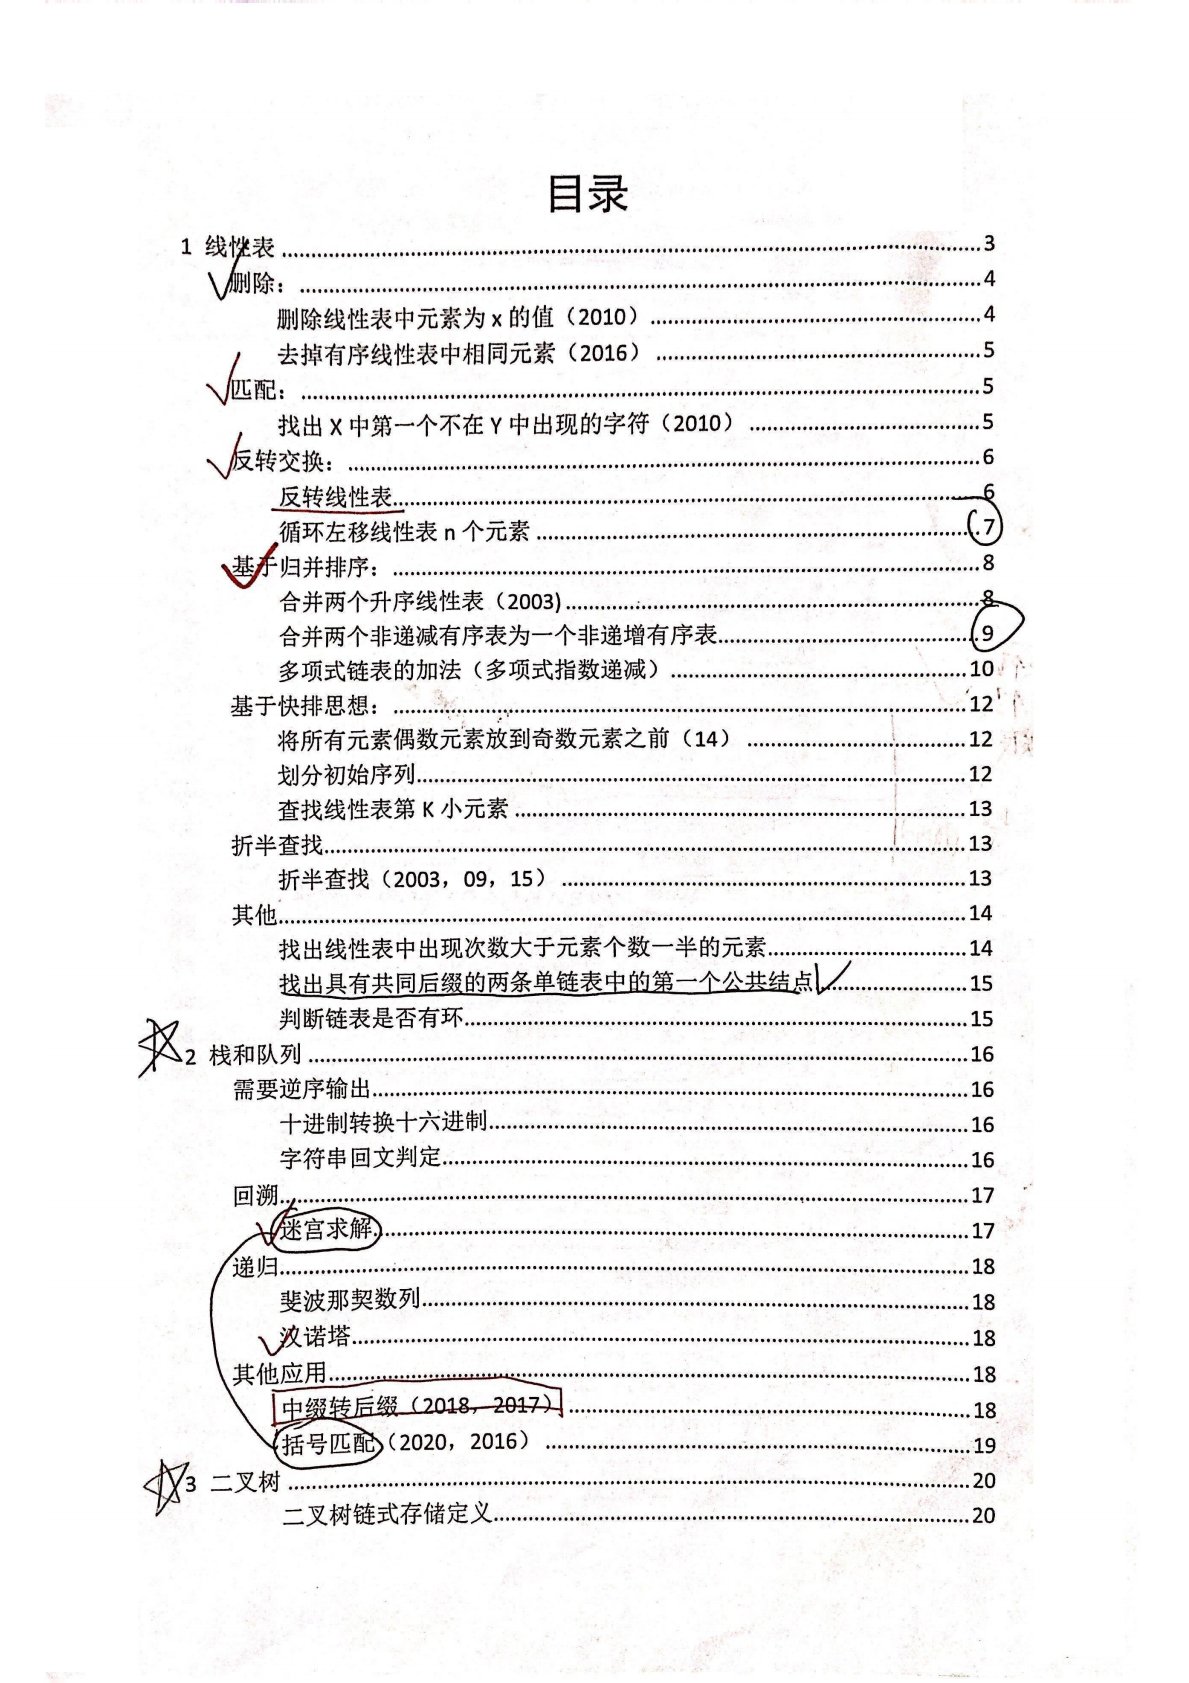 目录
1 线性表 ........ 3
删除： ........ 4
删除线性表中元素为 x 的值（2010） ........ 4
去掉有序线性表中相同元素（2016） ........ 5
匹配： ........ 5
找出 X 中第一个不在 Y 中出现的字符（2010） ........ 5
反转交换： ........ 6
反转线性表 ........ 6
循环左移线性表 n 个元素 ........ 7
基于归并排序： ........ 8
合并两个升序线性表（2003) ........ 8
合并两个非递减有序表为一个非递增有序表 ........ 9
多项式链表的加法（多项式指数递减） ........ 10
基于快排思想： ........ 12
将所有元素偶数元素放到奇数元素之前（14） ........ 12
划分初始序列 ........ 12
查找线性表第 K 小元素 ........ 13
折半查找 ........ 13
折半查找（2003，09，15） ........ 13
其他 ........ 14
找出线性表中出现次数大于元素个数一半的元素 ........ 14
找出具有共同后缀的两条单链表中的第一个公共结点 ........ 15
判断链表是否有环 ........ 15
2 栈和队列 ........ 16
需要逆序输出 ........ 16
十进制转换十六进制 ........ 16
字符串回文判定 ........ 16
回溯 ........ 17
迷宫求解 ........ 17
递归 ........ 18
斐波那契数列 ........ 18
汉诺塔 ........ 18
其他应用 ........ 18
中缀转后缀（2018，2017） ........ 18
括号匹配（2020，2016） ........ 19
3 二叉树 ........ 20
二叉树链式存储定义 ........ 20